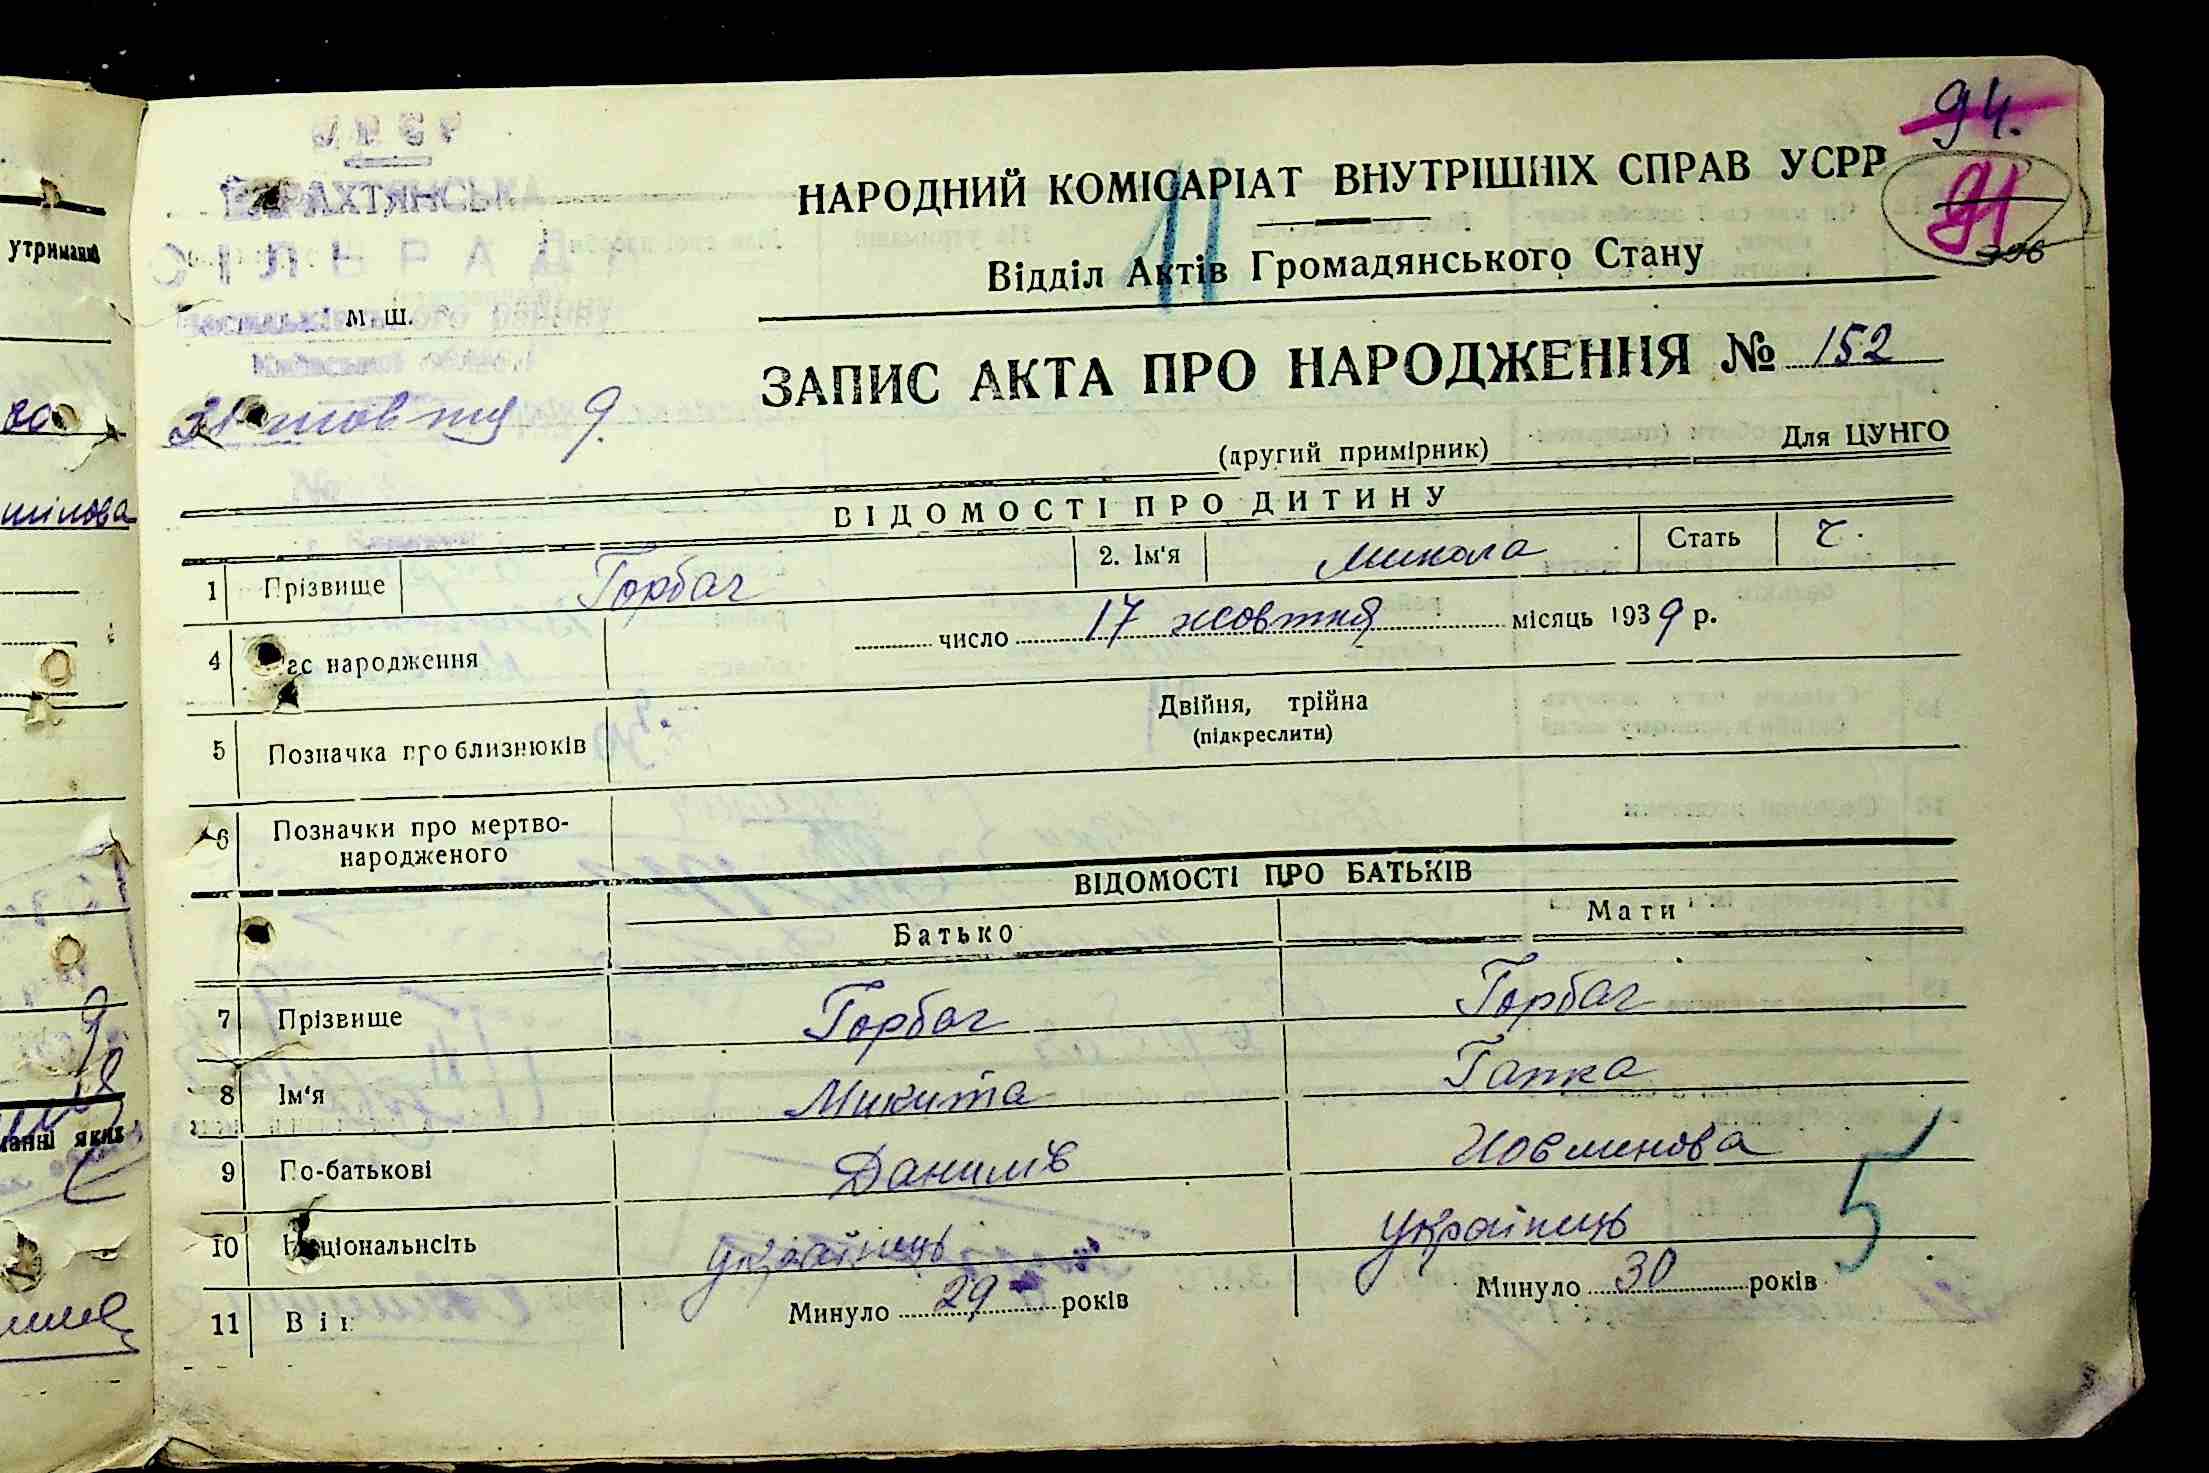 94.
НАРОДНИЙ КОМІСАРІАТ ВНУТРІШНІХ СПРАВ УСРР
91
11
Відділ Актів Громадянського Стану
УРСР
БАРАХТЯНСЬКА
СІЛЬРАДА
М. Ш.
ЗАПИС АКТА ПРО НАРОДЖЕННЯ № 152
31 жовтня 9.
(другий примірник) Для ЦУНГО
ВІДОМОСТІ ПРО ДИТИНУ
1 Прізвище Горбач 2. Ім'я Микола Стать ч.
4 Час народження число 17 жовтня місяць 1939 р.
5 Позначка про близнюків Двійня, трійна
(підкреслити)
6 Позначки про мертво-
народженого
ВІДОМОСТІ ПРО БАТЬКІВ
Батько Мати
7 Прізвище Горбач Горбач
8 Ім'я Микита Гапка
9 По-батькові Данилів
10 Національнсіть українець українець
5
11 Вік Минуло 29 років Минуло 30 років
утриманні